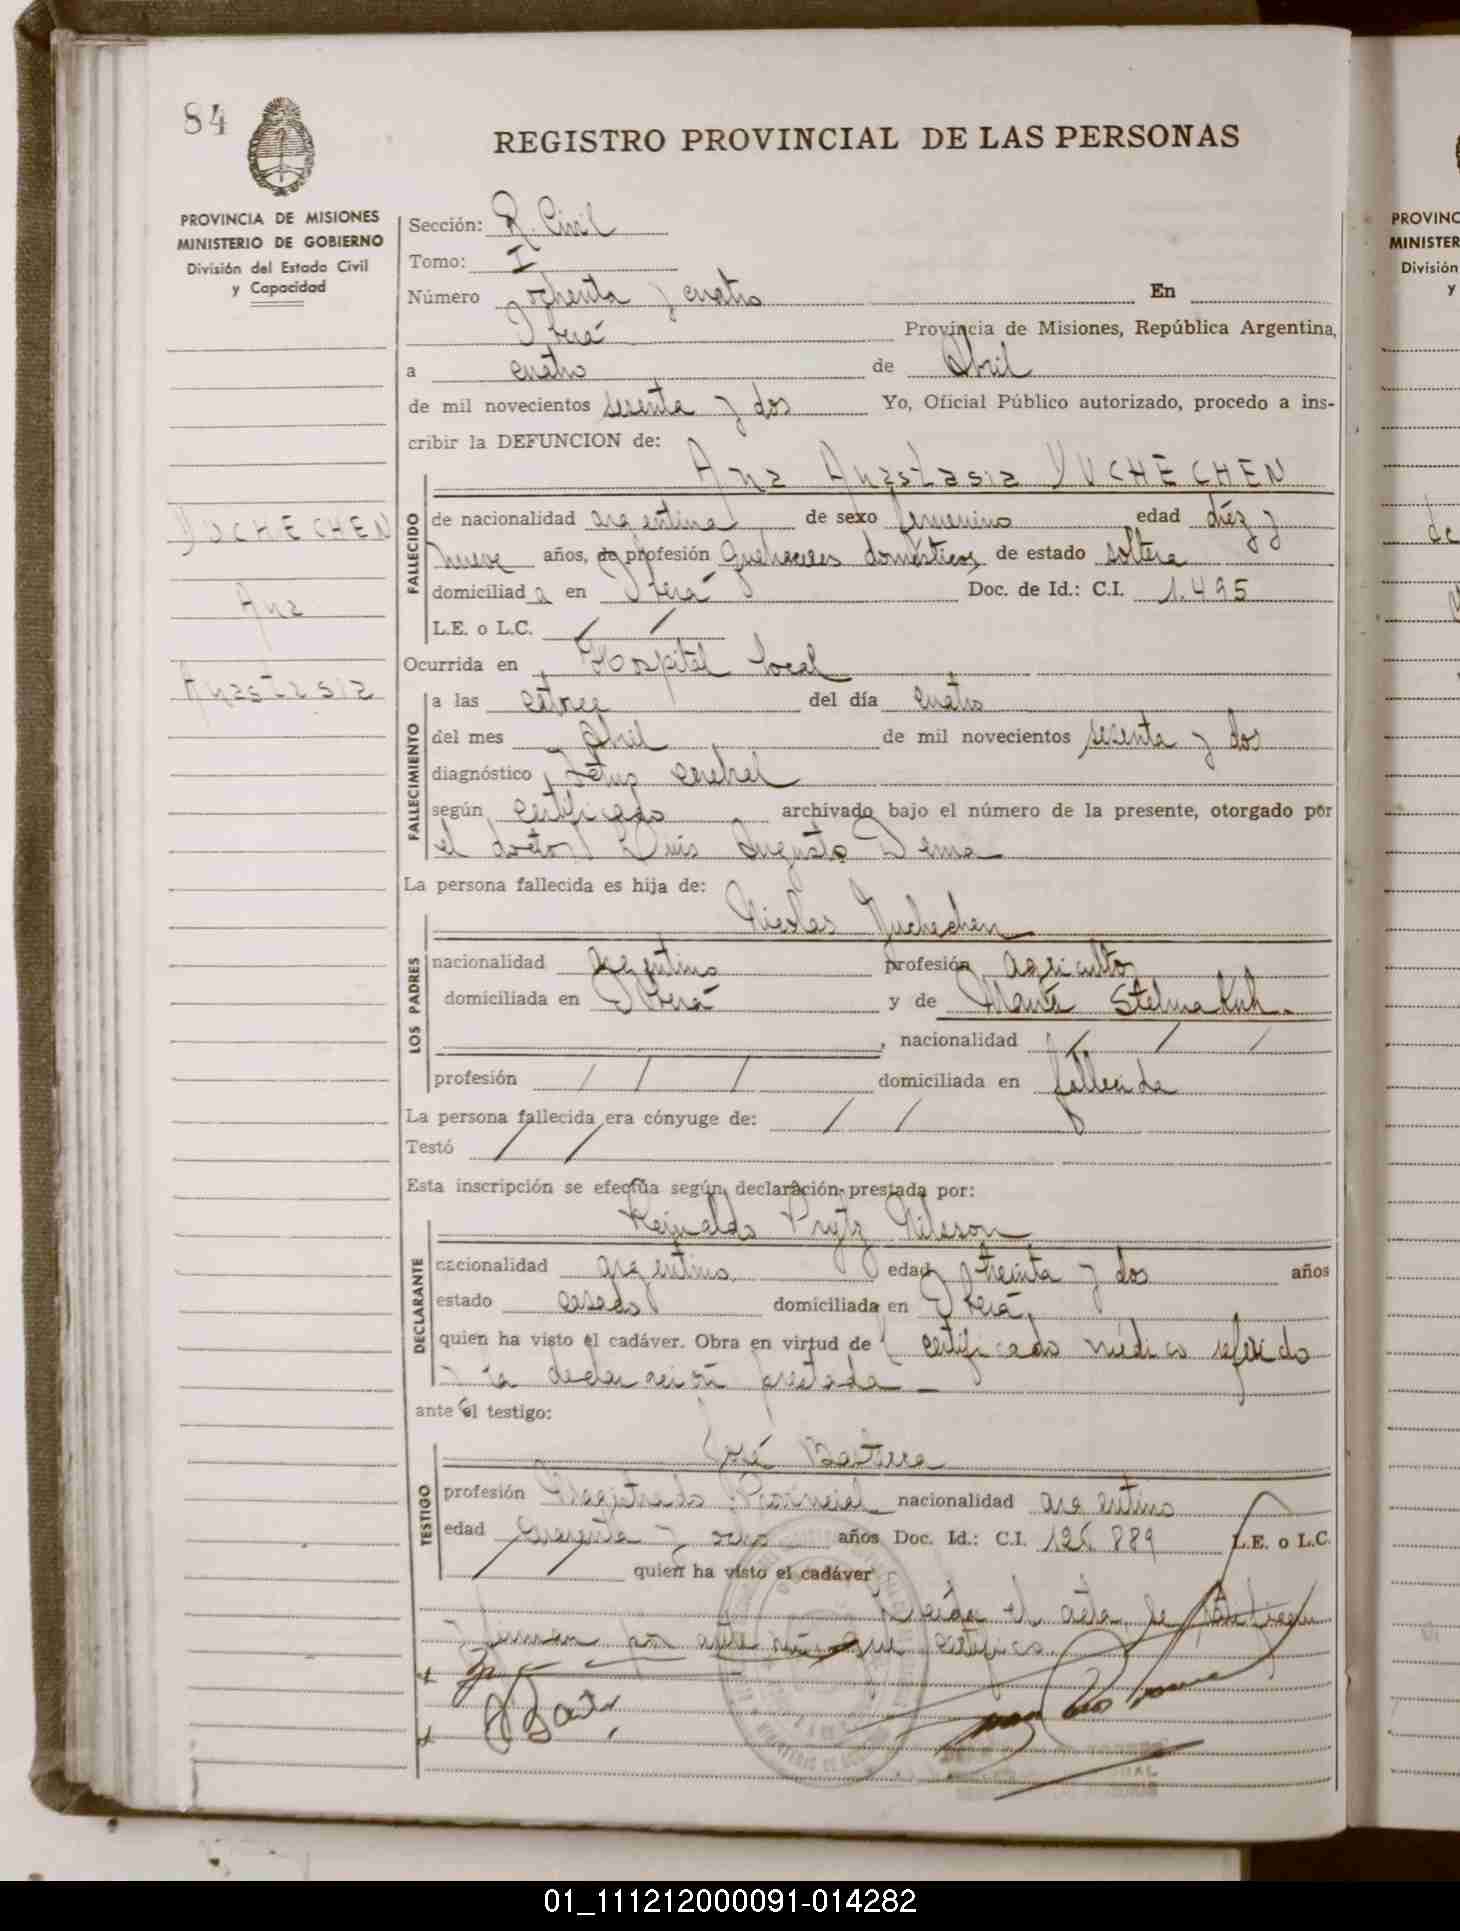 84
REGISTRO PROVINCIAL DE LAS PERSONAS
PROVINCIA DE MISIONES
MINISTERIO DE GOBIERNO
División del Estado Civil
y Capacidad
YUCHECHEN
Ana
Anastasia
Sección: R. Civil
Tomo: I
Número ochenta y cuatro En
Oberá Provincia de Misiones, República Argentina,
a cuatro de Abril
de mil novecientos sesenta y dos Yo, Oficial Público autorizado, procedo a ins-
cribir la DEFUNCION de:
Ana Anastasia YUCHECHEN
FALLECIDO
de nacionalidad argentina de sexo femenino edad diez y
nueve años, de profesión quehaceres domésticos de estado soltera
domiciliad a en Oberá Doc. de Id.: C.I. 1.495
L.E. o L.C. / /
Ocurrida en Hospital local
FALLECIMIENTO
a las catorce del día cuatro
del mes Abril de mil novecientos sesenta y dos
diagnóstico Ictus cerebral
según certificado archivado bajo el número de la presente, otorgado por
el doctor Luis Augusto Derna
La persona fallecida es hija de:
Nicolas Yuchechen
LOS PADRES
nacionalidad argentino profesión agricultor
domiciliada en Oberá y de María Stelmakuk.
, nacionalidad / / /
profesión / / / domiciliada en fallecida
La persona fallecida era cónyuge de: / /
Testó / /
Esta inscripción se efectúa según declaración prestada por:
Reinaldo Prytz Nilsson
DECLARANTE
nacionalidad argentino edad treinta y dos años
estado casado domiciliada en Oberá,
quien ha visto el cadáver. Obra en virtud de certificado médico referido
y la declaración prestada
ante el testigo:
José Bastrea
TESTIGO
profesión Magistrado Provincial nacionalidad argentino
edad cuarenta y ocho años Doc. Id.: C.I. 126.889 L.E. o L.C.
/ / quien ha visto el cadáver
Leída el acta, se
firman por ante mí que certifico.
PROVINC
MINISTER
División
y
01_111212000091-014282